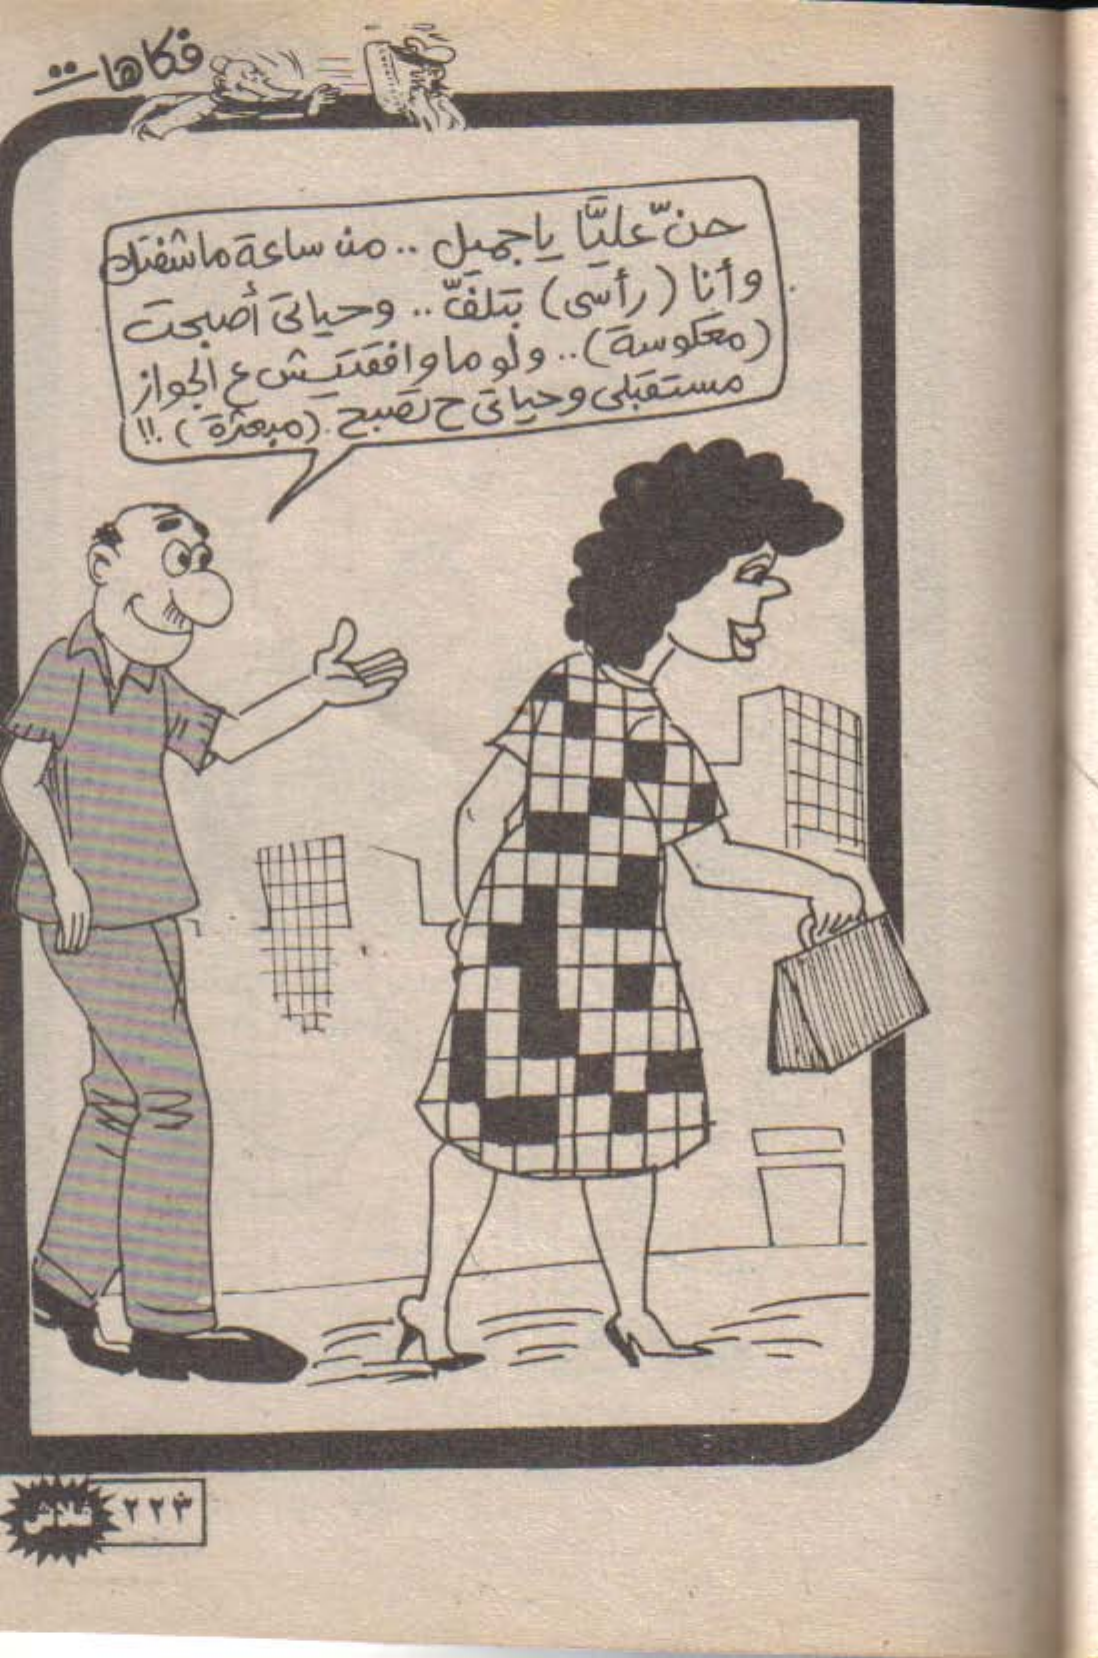 فكاهات..
حنّ عليَّا ياجميل .. من ساعة ماشفتك
وأنا (رأسى) بتلفّ .. وحياتى أصبحت
(معكوسة) .. ولو ما وافقتيش ع الجواز
مستقبلى وحياتى ح تصبح (مبعثرة) !!
٢٢٣ فلاش